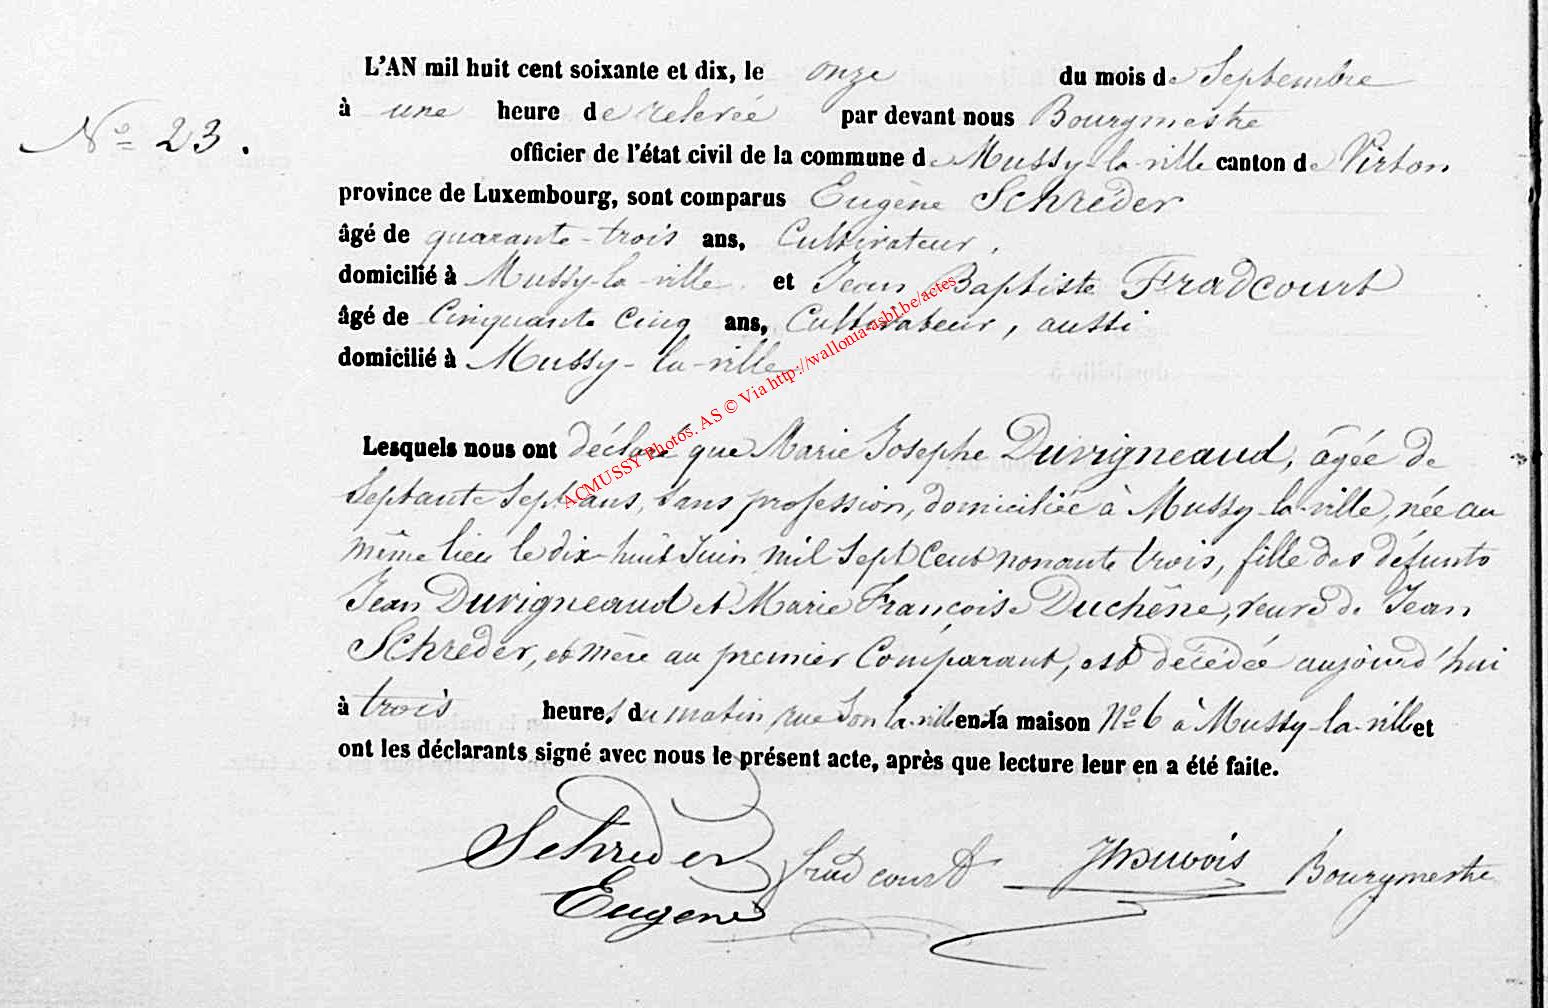 L'AN mil huit cent soixante et dix, le onze du mois de Septembre
N° 23. à une heure de relevée par devant nous Bourgmestre
officier de l'état civil de la commune de Mussy-la-ville canton de Virton
province de Luxembourg, sont comparus Eugène Schreder
âgé de quarante-trois ans, Cultivateur,
domicilié à Mussy-la-ville et Jean Baptiste Fradcourt
âgé de Cinquante Cinq ans, Cultivateur, aussi
domicilié à Mussy-la-ville
ACMUSSY Photos. AS © Via http://wallonia-asbl.be/actes
Lesquels nous ont déclaré que Marie Josephe Duvigneaud, âgée de
Septante Sept ans, sans profession, domiciliée à Mussy-la-ville, née au
même lieu le dix-huit Juin mil Sept Cent nonante trois, fille des défunts
Jean Duvigneaud et Marie Françoise Duchêne, veuve de Jean
Schreder, et mère au premier Comparant, est décédée aujourd'hui
à trois heures du matin rue la-ville en la maison N° 6 à Mussy-la-ville et
ont les déclarants signé avec nous le présent acte, après que lecture leur en a été faite.
Schreder fradcourt Bourgmestre
Eugene